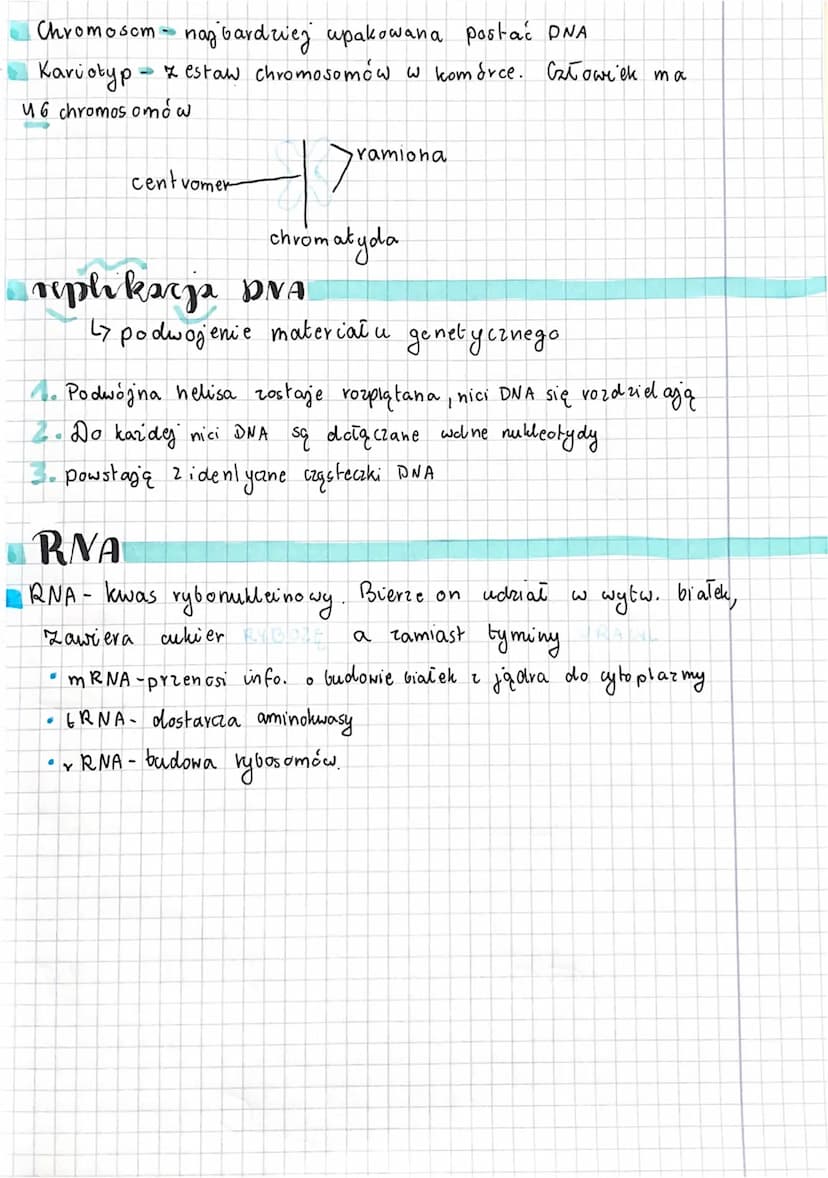 Chromosom - najbardziej upakowana postać DNA
Kariotyp - zestaw chromosomów w komórce. Człowiek ma
46 chromosomów
ramiona
centromer
chromatyda
replikacja DNA
↳ podwojenie materiału genetycznego
1. Podwójna helisa zostaje rozplątana, nici DNA się rozdzielają
2. Do każdej nici DNA są dołączane wolne nukleotydy
3. powstają 2 identyczne cząsteczki DNA
RNA
RNA - kwas rybonukleinowy. Bierze on udział w wytw. białek,
zawiera cukier RYBOZĘ a zamiast tyminy URACYL
• mRNA - przenosi info. o budowie białek z jądra do cytoplazmy
• tRNA - dostarcza aminokwasy
• rRNA - budowa rybosomów.